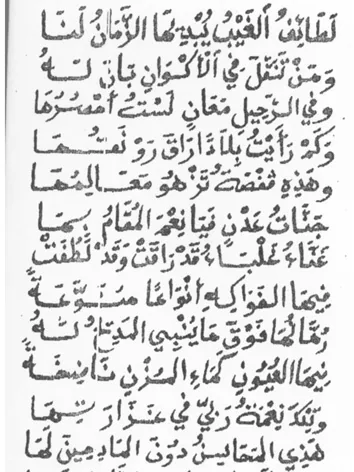 لَطَائِفُ الْغَيْبِ يُبْدِيهَا الزَّمَانُ لَنَا
وَمَنْ تَنَقَّلَ فِي الْأَكْوَانِ بَانَ لَهُ
وَفِي الرَّحِيلِ مَعَانٍ لَسْتُ أَحْصُرُهَا
وَكَمْ رَأَيْتُ بِلَادًا رَاقَ رَوْنَقُهَا
وَهَذِهِ قَفْصَةٌ تَزْهُو مَعَالِمُهَا
جَنَّاتُ عَدْنٍ فَيَا نِعْمَ الْمُقَامُ بِهَا
غَنَّاءُ غَلْبَاءُ قَدْ رَاقَتْ وَقَدْ لَطُفَتْ
فِيهَا الْفَوَاكِهُ أَنْوَاعًا مُنَوَّعَةً
رُمَّانُهَا فَوْقَ مَا يُنْبِي الْمَدِيحُ لَهُ
فِيهَا الْعُيُونُ كَمَاءِ الْمُزْنِ نَاضِخَةً
وَتِلْكَ نِعْمَةُ رَبِّي فِي
هَذِي الْمَحَاسِنُ دُونَ الْمَادِحِينَ لَهَا